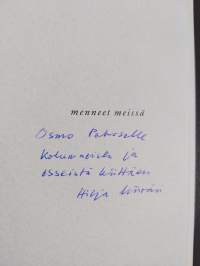 menneet meissä
Osmo Pekoselle
Kolumneista ja
esseistä kiittäen
Hilja Mörsäri